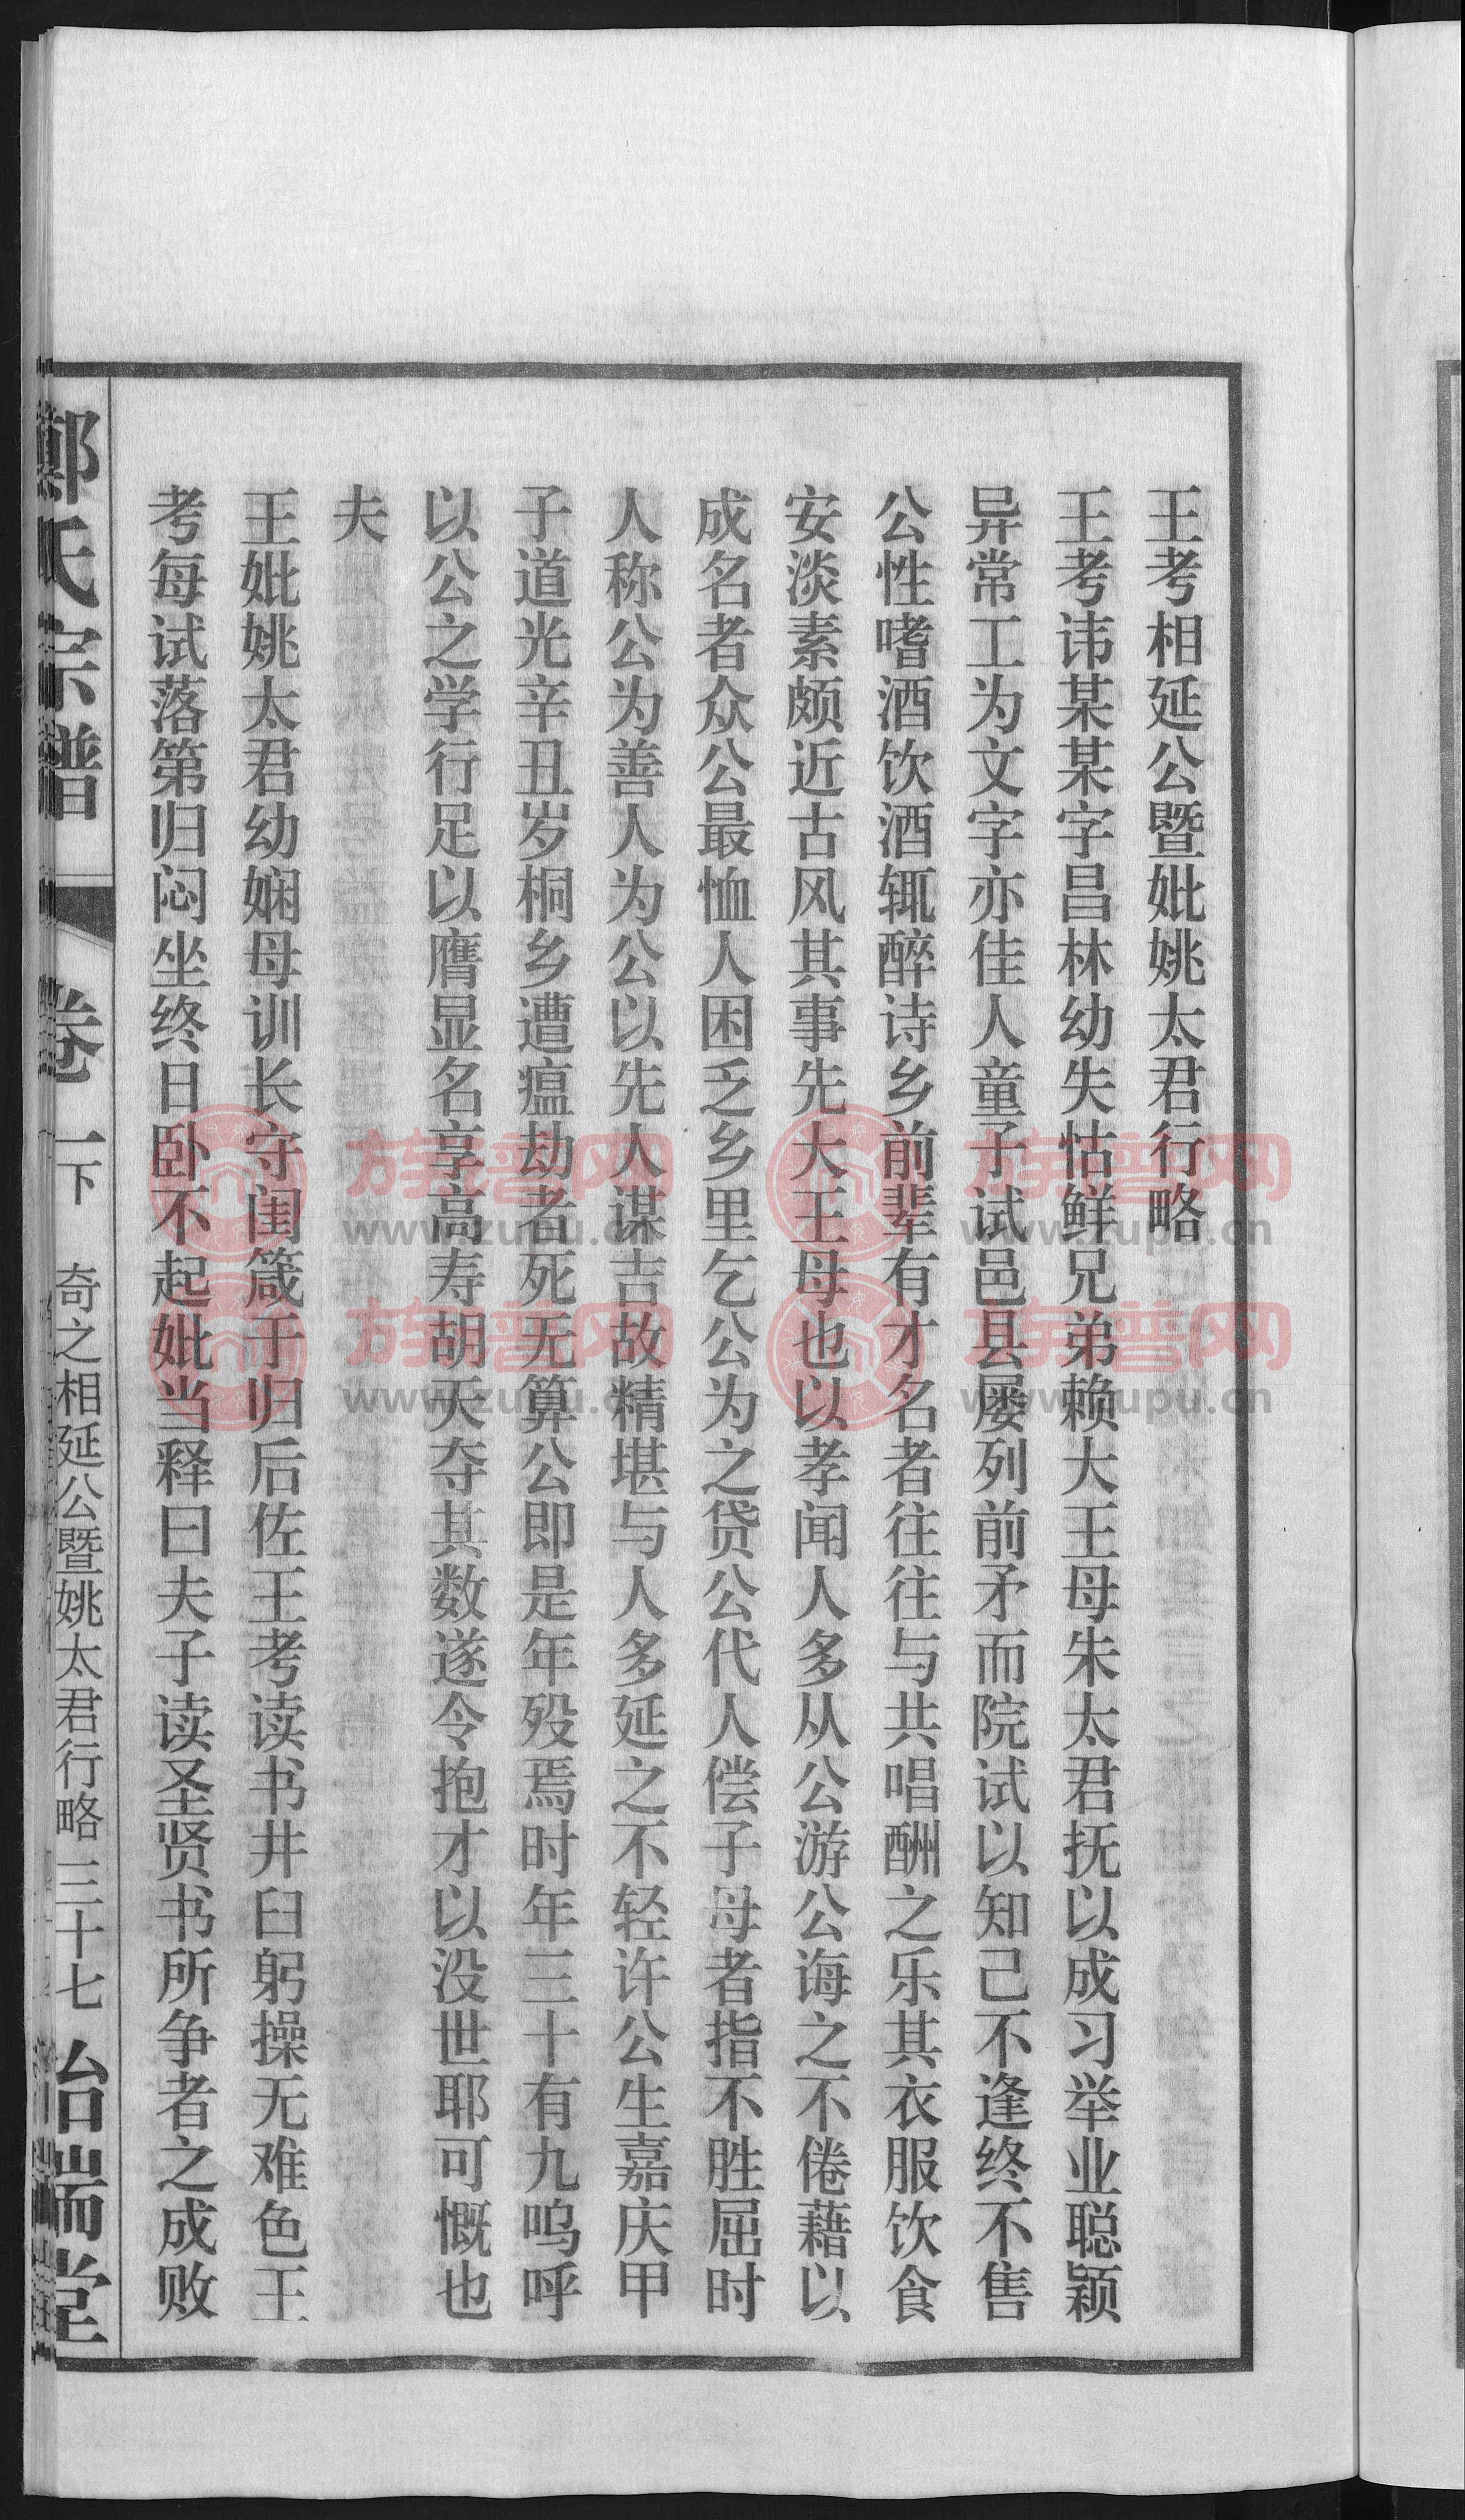 王考相延公暨妣姚太君行略
王考讳某某字昌林幼失怙鲜兄弟赖大王母朱太君抚以成习举业聪颖
异常工为文字亦佳人童子试邑县屡列前矛而院试以知己不逢终不售
公性嗜酒饮酒辄醉诗乡前辈有才名者往往与共唱酬之乐其衣服饮食
安淡素颇近古风其事先大王母也以孝闻人多从公游公诲之不倦藉以
成名者众公最恤人困乏乡里乞公为之贷公代人偿子母者指不胜屈时
人称公为善人为公以先人谋吉故精堪与人多延之不轻许公生嘉庆甲
子道光辛丑岁桐乡遭瘟劫者死无算公即是年殁焉时年三十有九呜呼
以公之学行足以膺显名享高寿胡天夺其数遂令抱才以没世耶可慨也
夫
王妣姚太君幼娴母训长守闺箴于归后佐王考读书井臼躬操无难色王
考每试落第归闷坐终日卧不起妣当释曰夫子读圣贤书所争者之成败
鄭氏宗譜
卷一下
奇之相延公暨姚太君行略
三十七
治瑞堂
族谱网
www.zupu.cn
族谱网
www.zupu.cn
族谱网
www.zupu.cn
族谱网
www.zupu.cn